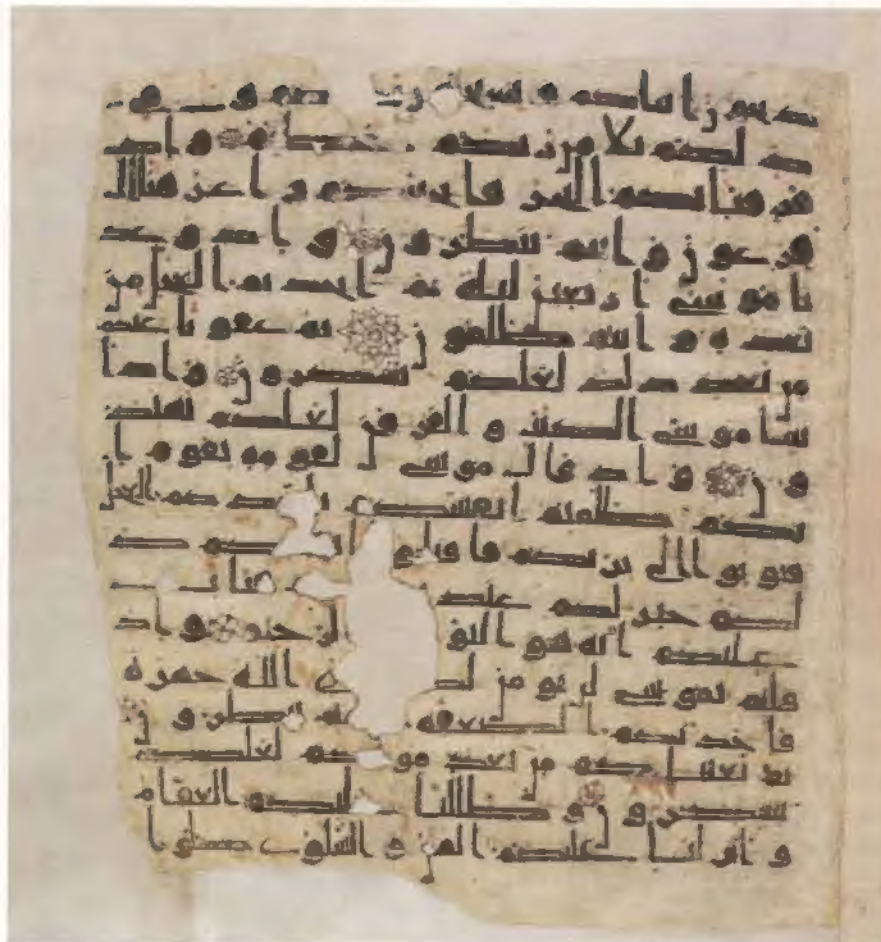 يذبحون ابناكم ويستحيون نساكم وفي
ذلكم بلا من ربكم عظيم واذ
فرقنا بكم البحر فانجينكم واغرقنا ال
فرعون وانتم تنظرون واذ وعد
نا موسى اربعين ليلة ثم اتخذتم العجل من
بعده وانتم ظلمون ثم عفونا عنكم
من بعد ذلك لعلكم تشكرون واذ ا
تينا موسى الكتب والفرقن لعلكم تهتد
ون واذ قال موسى لقومه يقوم ا
نكم ظلمتم انفسكم باتخاذكم العجل
فتوبوا الى بارئكم فاقتلوا ذ
لكم خير لكم عند فتاب
عليكم انه هو التواب الرحيم واذ
قلتم يموسى لن نومن لك الله جهرة
فاخذتكم الصعقة تنظرون
ثم بعثنكم من بعد موتكم لعلكم
تشكرون وظللنا عليكم الغمام
وانزلنا عليكم المن والسلوى كلوا